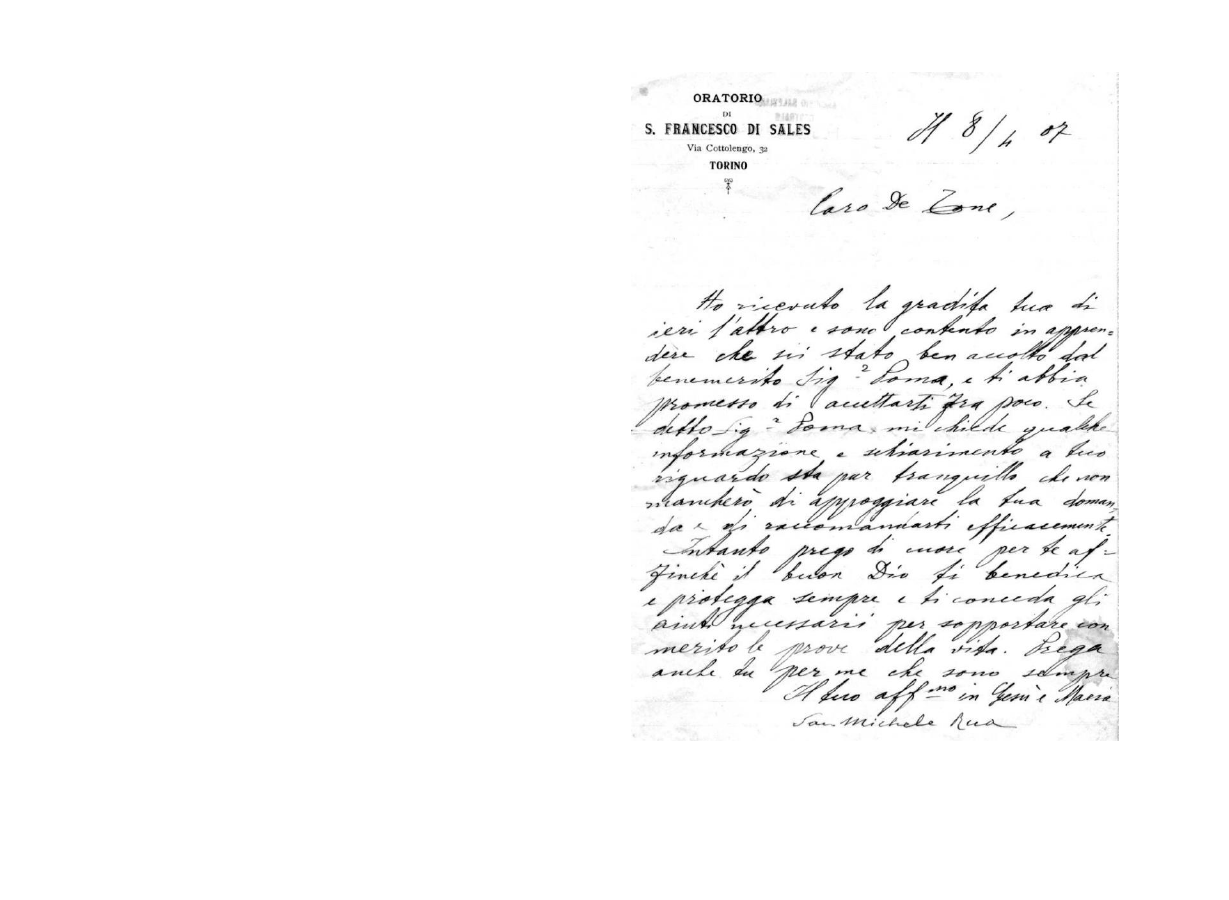 ORATORIO
DI
S. FRANCESCO DI SALES
Via Cottolengo, 32
TORINO
Il 8/4 07
Caro De Zone,
Ho ricevuto la gradita tua di
ieri l'altro e sono contento in appren=
dere che sii stato ben accolto dal
benemerito Sig.r Poma, e ti abbia
promesso di accettarti fra poco. Se
detto Sig.r Poma mi chiede qualche
informazione e schiarimento a tuo
riguardo sta pur tranquillo che non
mancherò di appoggiare la tua doman,
da e di raccomandarti efficacemente.
Intanto prego di cuore per te af-
finchè il buon Dio ti benedica
e protegga sempre e ti conceda gli
aiuti necessarii per sopportare con
merito le prove della vita. Prega
anche tu per me che sono sempre
Il tuo aff.mo in Gesù e Maria
Sac Michele Rua